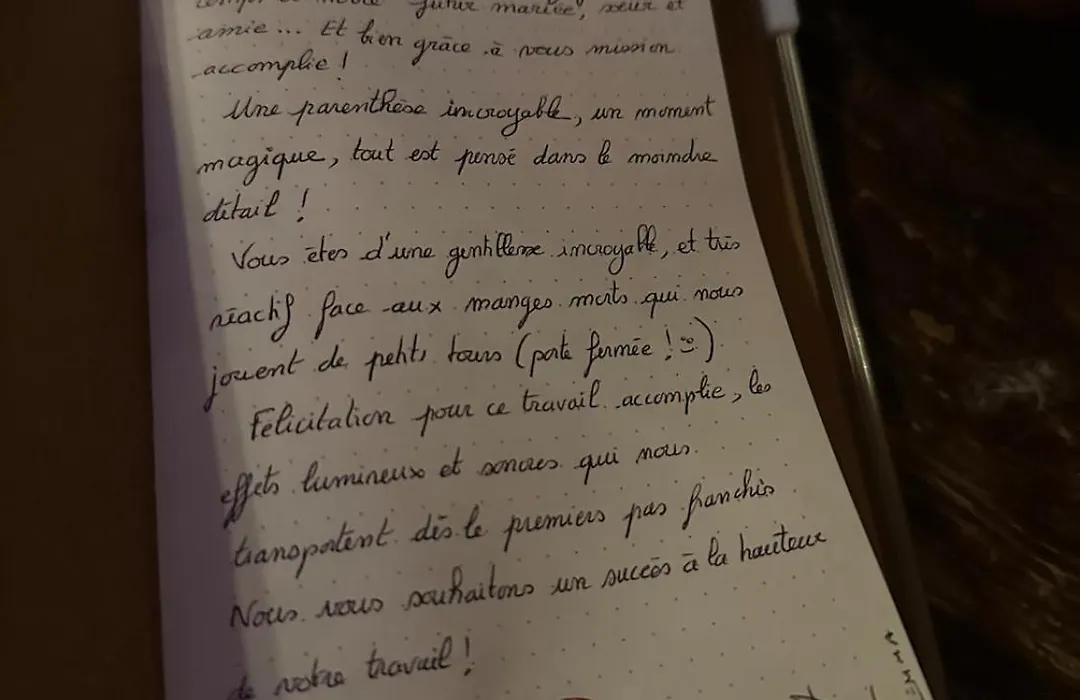 future mariée, sœur et
amie... Et bien grâce à vous mission
accomplie !
Une parenthèse incroyable, un moment
magique, tout est pensé dans le moindre
détail !
Vous êtes d'une gentillesse incroyable, et très
réactif face aux manges morts qui nous
jouent de petits tours (porte fermée ! :)
Félicitation pour ce travail accomplie, les
effets lumineux et sonores qui nous
transportent dès le premiers pas franchis
Nous vous souhaitons un succès à la hauteur
de votre travail !